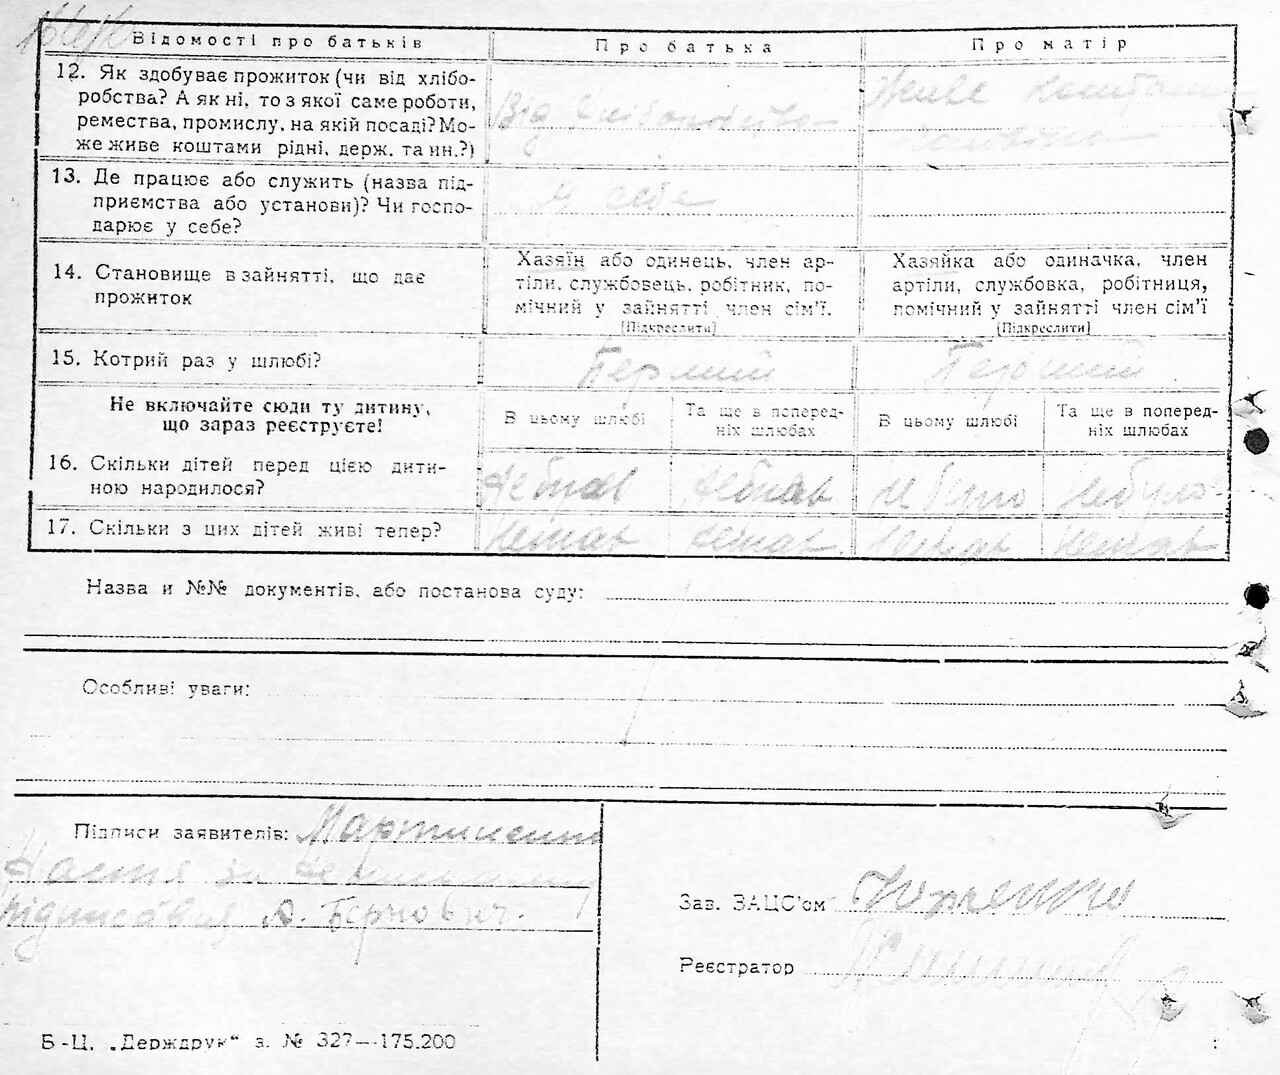 Відомості про батьків Про батька Про матір
12. Як здобуває прожиток (чи від хлібо-
робства? А як ні, то з якої саме роботи,
ремества, промислу, на якій посаді? Мо-
же живе коштами рідні, держ. та ин.?)
Від
Живе коштам
13. Де працює або служить (назва під-
приємства або установи)? Чи госпо-
дарює у себе?
У себе
14. Становище в зайнятті, що дає
прожиток
Хазяїн або одинець, член ар-
тіли, службовець, робітник, по-
мічний у зайнятті член сім'ї.
(Підкреслити)
Хазяйка або одиначка, член
артіли, службовка, робітниця,
помічний у зайнятті член сім'ї
(Підкреслити)
15. Котрий раз у шлюбі?
Перший Перший
Не включайте сюди ту дитину,
що зараз реєструєте!
В цьому шлюбі
Та ще в поперед-
ніх шлюбах
В цьому шлюбі
Та ще в поперед-
ніх шлюбах
16. Скільки дітей перед цією дити-
ною народилося?
не було небуло
17. Скільки з цих дітей живі тепер?
Немає Немає Немає Немає
Назва и №№ документів, або постанова суду:
Особливі уваги:
Підписи заявителів: Мартиненко
Настя за
підписався А.
Зав. ЗАЦС'ом
Реєстратор
Б-Ц. „Держдрук" з. № 327—175.200